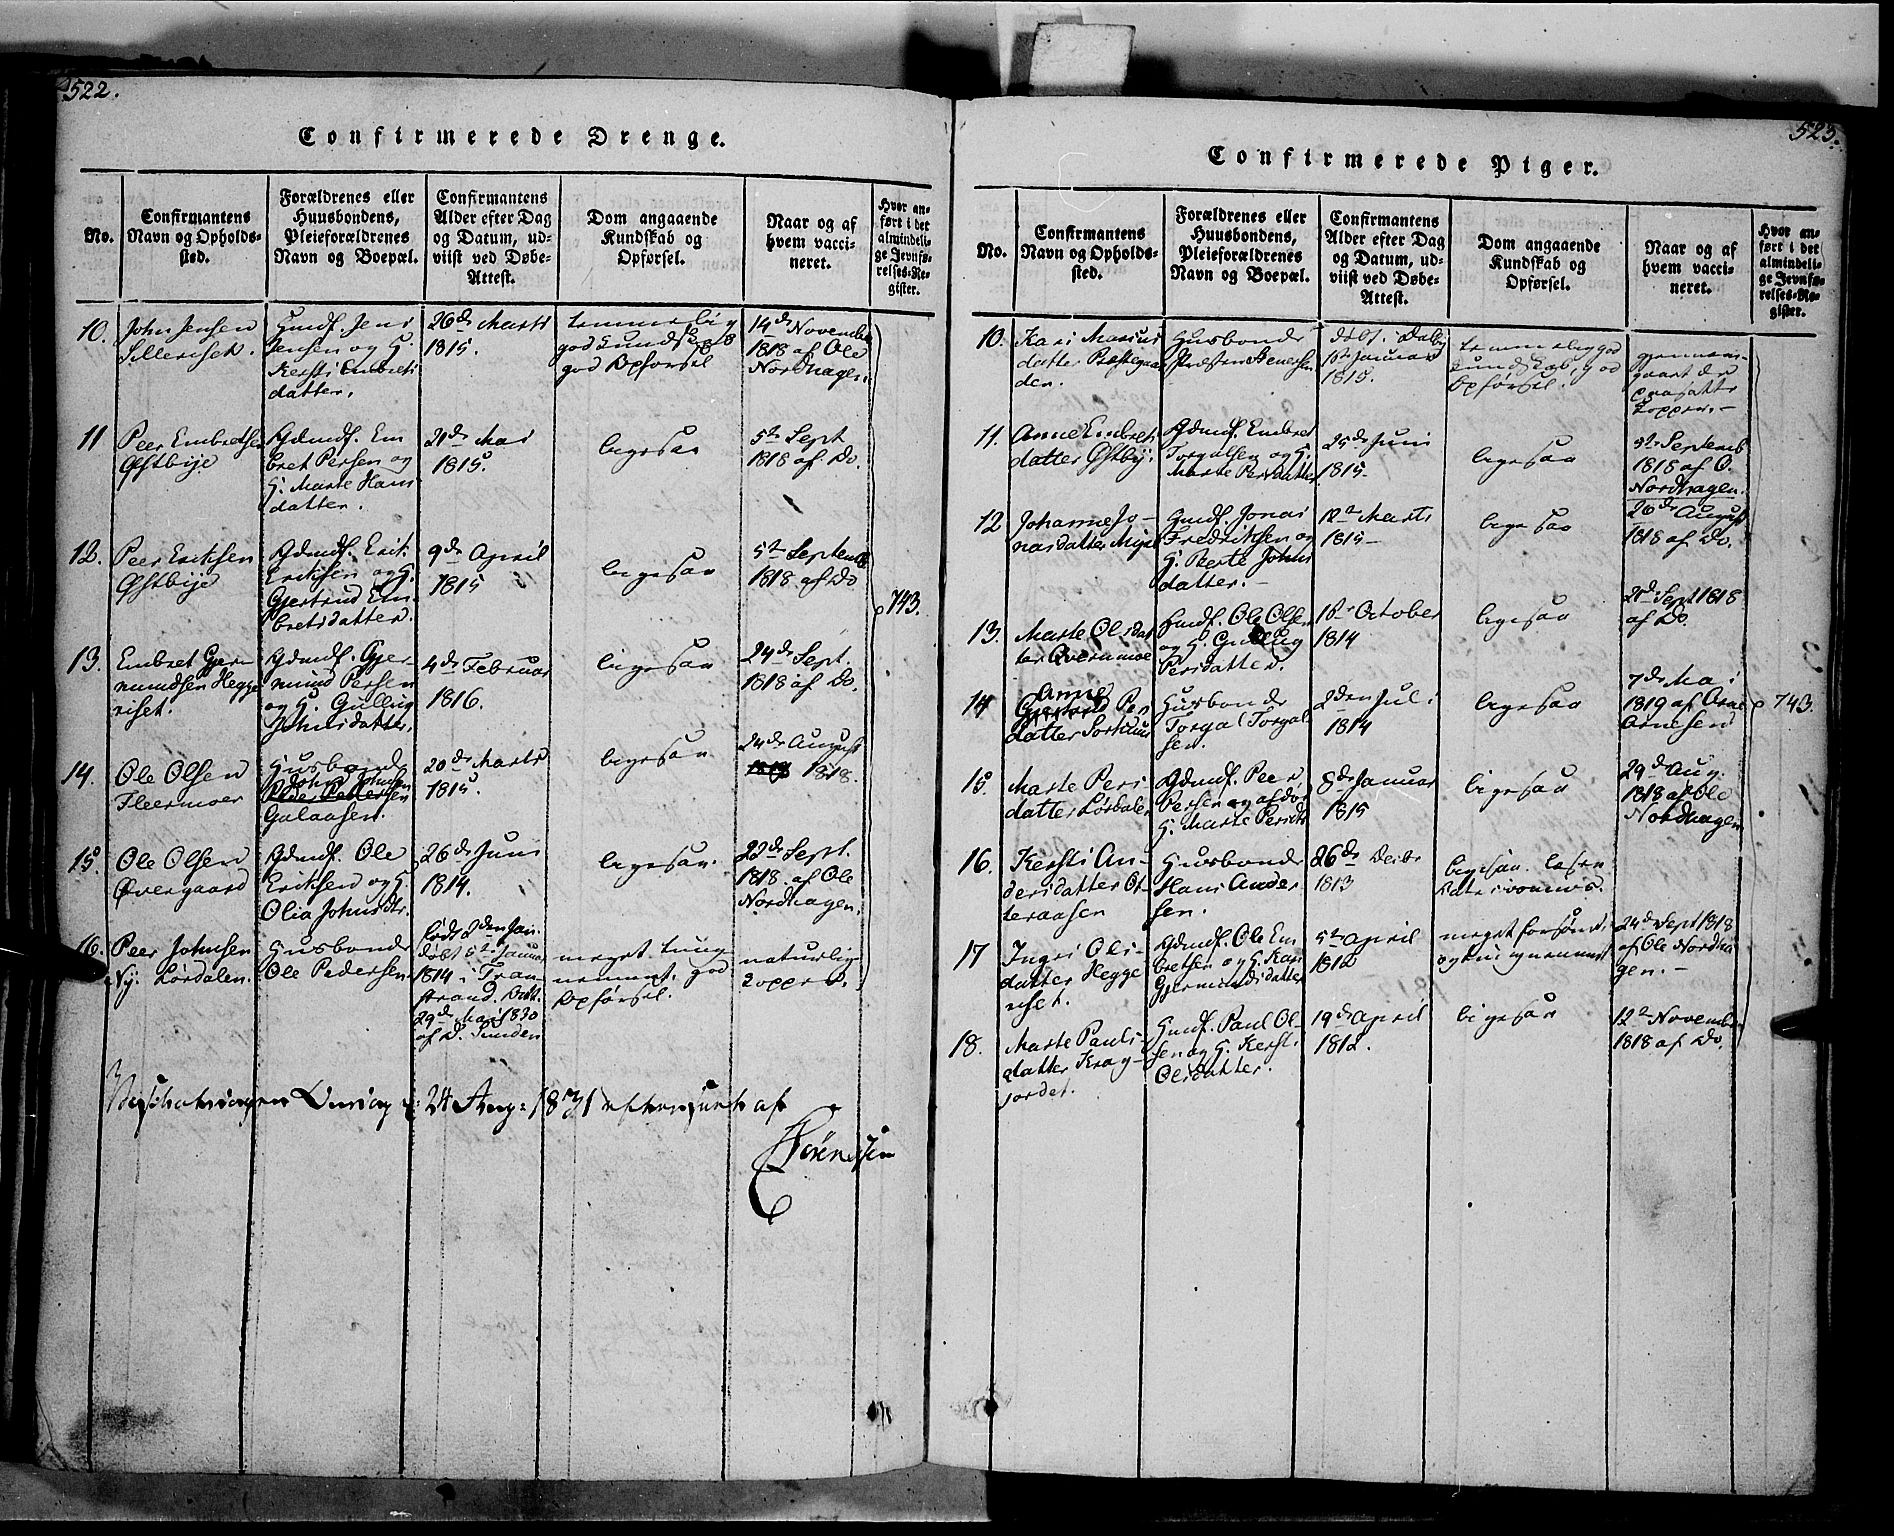 522.
Confirmerede Drenge.
No.
Confirmantens
Navn og Opholds-
sted.
Forældrenes eller
Huusbondens,
Pleieforældrenes
Navn og Boepæl.
Confirmantens
Alder efter Dag
og Datum, ud-
viist ved Døbe-
Attest.
Dom angaaende
Kundskab og
Opførsel.
Naar og af
hvem vacci-
neret.
Hvor an-
ført i det
almindeli-
ge Jevnfø-
relses-Re-
gister.
10.
John Jensen
Sillerisek.
Huusf. Jens
Jensen og H.
Kersti Embrets
datter.
26de Marts
1815.
temmelig
god Kundskab
god Opførsel
14de November
1818 af Ole
Nordhagen.
11
Peer Embretsen
Østbye
Gdmf. Em
bret Persen og
H. Marte Hans
datter.
21de Mai
1815.
ligesaa
5te Sept
1818 af Do.
12.
Peer Eriksen
Østbye
Gdmf. Erik
Eriksen og H.
Gjertrud Em-
bretsdatter.
9de April
1815
ligesaa
5te Septemb
1818 af Do
743.
13.
Embret Gjer-
mundsen Hegge
riset.
Gdmf. Gjer-
mund Persen
og H. Gullug
Johnsdatter.
4de Februar
1816.
ligesaa
24de Sept.
1818 af Do.
14.
Ole Olsen
Fleermoer
Husbonde
John Johnsen
Peder Pedersen
Galaasen.
20de Marts
1815.
ligesaa
24de August
1818.
15.
Ole Olsen
Øvergaard
Gdmf. Ole
Eriksen og H.
Olia Johnsdtr.
26de Juni
1814.
ligesaa.
22de Sept.
1818. af Ole
Nordhagen.
16.
Peer Johnsen
Ny. Lørdalen.
Husbonde
Ole Pedersen
født 2den Jan.
døbt 5te Januar
1814 i Tran
strand. Att.
29de Mai 1830
af D. Sunden
meget tung
nemmet, god
Opførsel.
naturlige
Kopper.
24 Aug: 1831 efterseet af
Sørenssen
523.
Confirmerede Piger.
No.
Confirmantens
Navn og Opholds-
sted.
Forældrenes eller
Huusbondens,
Pleieforældrenes
Navn og Boepæl.
Confirmantens
Alder efter Dag
og Datum, ud-
viist ved Døbe-
Attest.
Dom angaaende
Kundskab og
Opførsel.
Naar og af
hvem vacci-
neret.
Hvor an-
ført i det
almindeli-
ge Jevnfø-
relses-Re-
gister.
10.
Kari Marius
datter Præstegaar
den.
Husbonde
Præsten Stenersen
døbt i Dalby
15te Januar
1815.
temmelig god
Kundskab, god
Opførsel.
gjennem-
gaaet de
Kopper.
11.
Anne Embrets
datter Østby.
Gdmf. Embret
Torgalsen og H.
Marte Persdatter
25de Juni
1815
ligesaa
5te Septemb
1818 af O.
Nordhagen.
12
Johanne Jo-
nasdatter
Huusf. Jonas
Fredriksen og
H. Peerte Johns
datter.
12te Marts
1815
ligesaa
26de August
1818 af Do.
13.
Marte Olsdat
ter Overmoe
Huusf. Ole Olsen
og H. Gullug
Persdatter.
18de October
1814
ligesaa
21de Sept 1818
af Do.
14
Anne
Gjertrud Per
datter Sorhuus
Husbonde
Torgal Torgal-
sen.
2den Juli
1814
ligesaa
7de Mai
1819 af Arne
Arnesen
743.
15.
Marte Pers
datter Lørdalen
Gdmf. Peer
Persen og afdøde
H. Marte Persdtr
8de Januar
1815
ligesaa
29de Aug.
1818 af Ole
Nordhagen
16.
Kersti An-
dersdatter Ot-
teraasen
Husbonde
Hans Ander
sen.
26de Decbr
1813
ligesaa.
17
Ingri Ols-
datter Hegge
riset.
Gdmf. Ole Em
bretsen og H. Kari
Gjermundsdatter
5te April
1812
meget forsømt,
og tungnemmet
24de Sept 1818
af Ole Nordha
gen.
18.
Marte Pauls-
datter Krog-
jordet.
Huusf. Paul Ol-
sen og H. Kersti
Olsdatter.
19de April
1812.
ligesaa
12te November
1818 af Do.